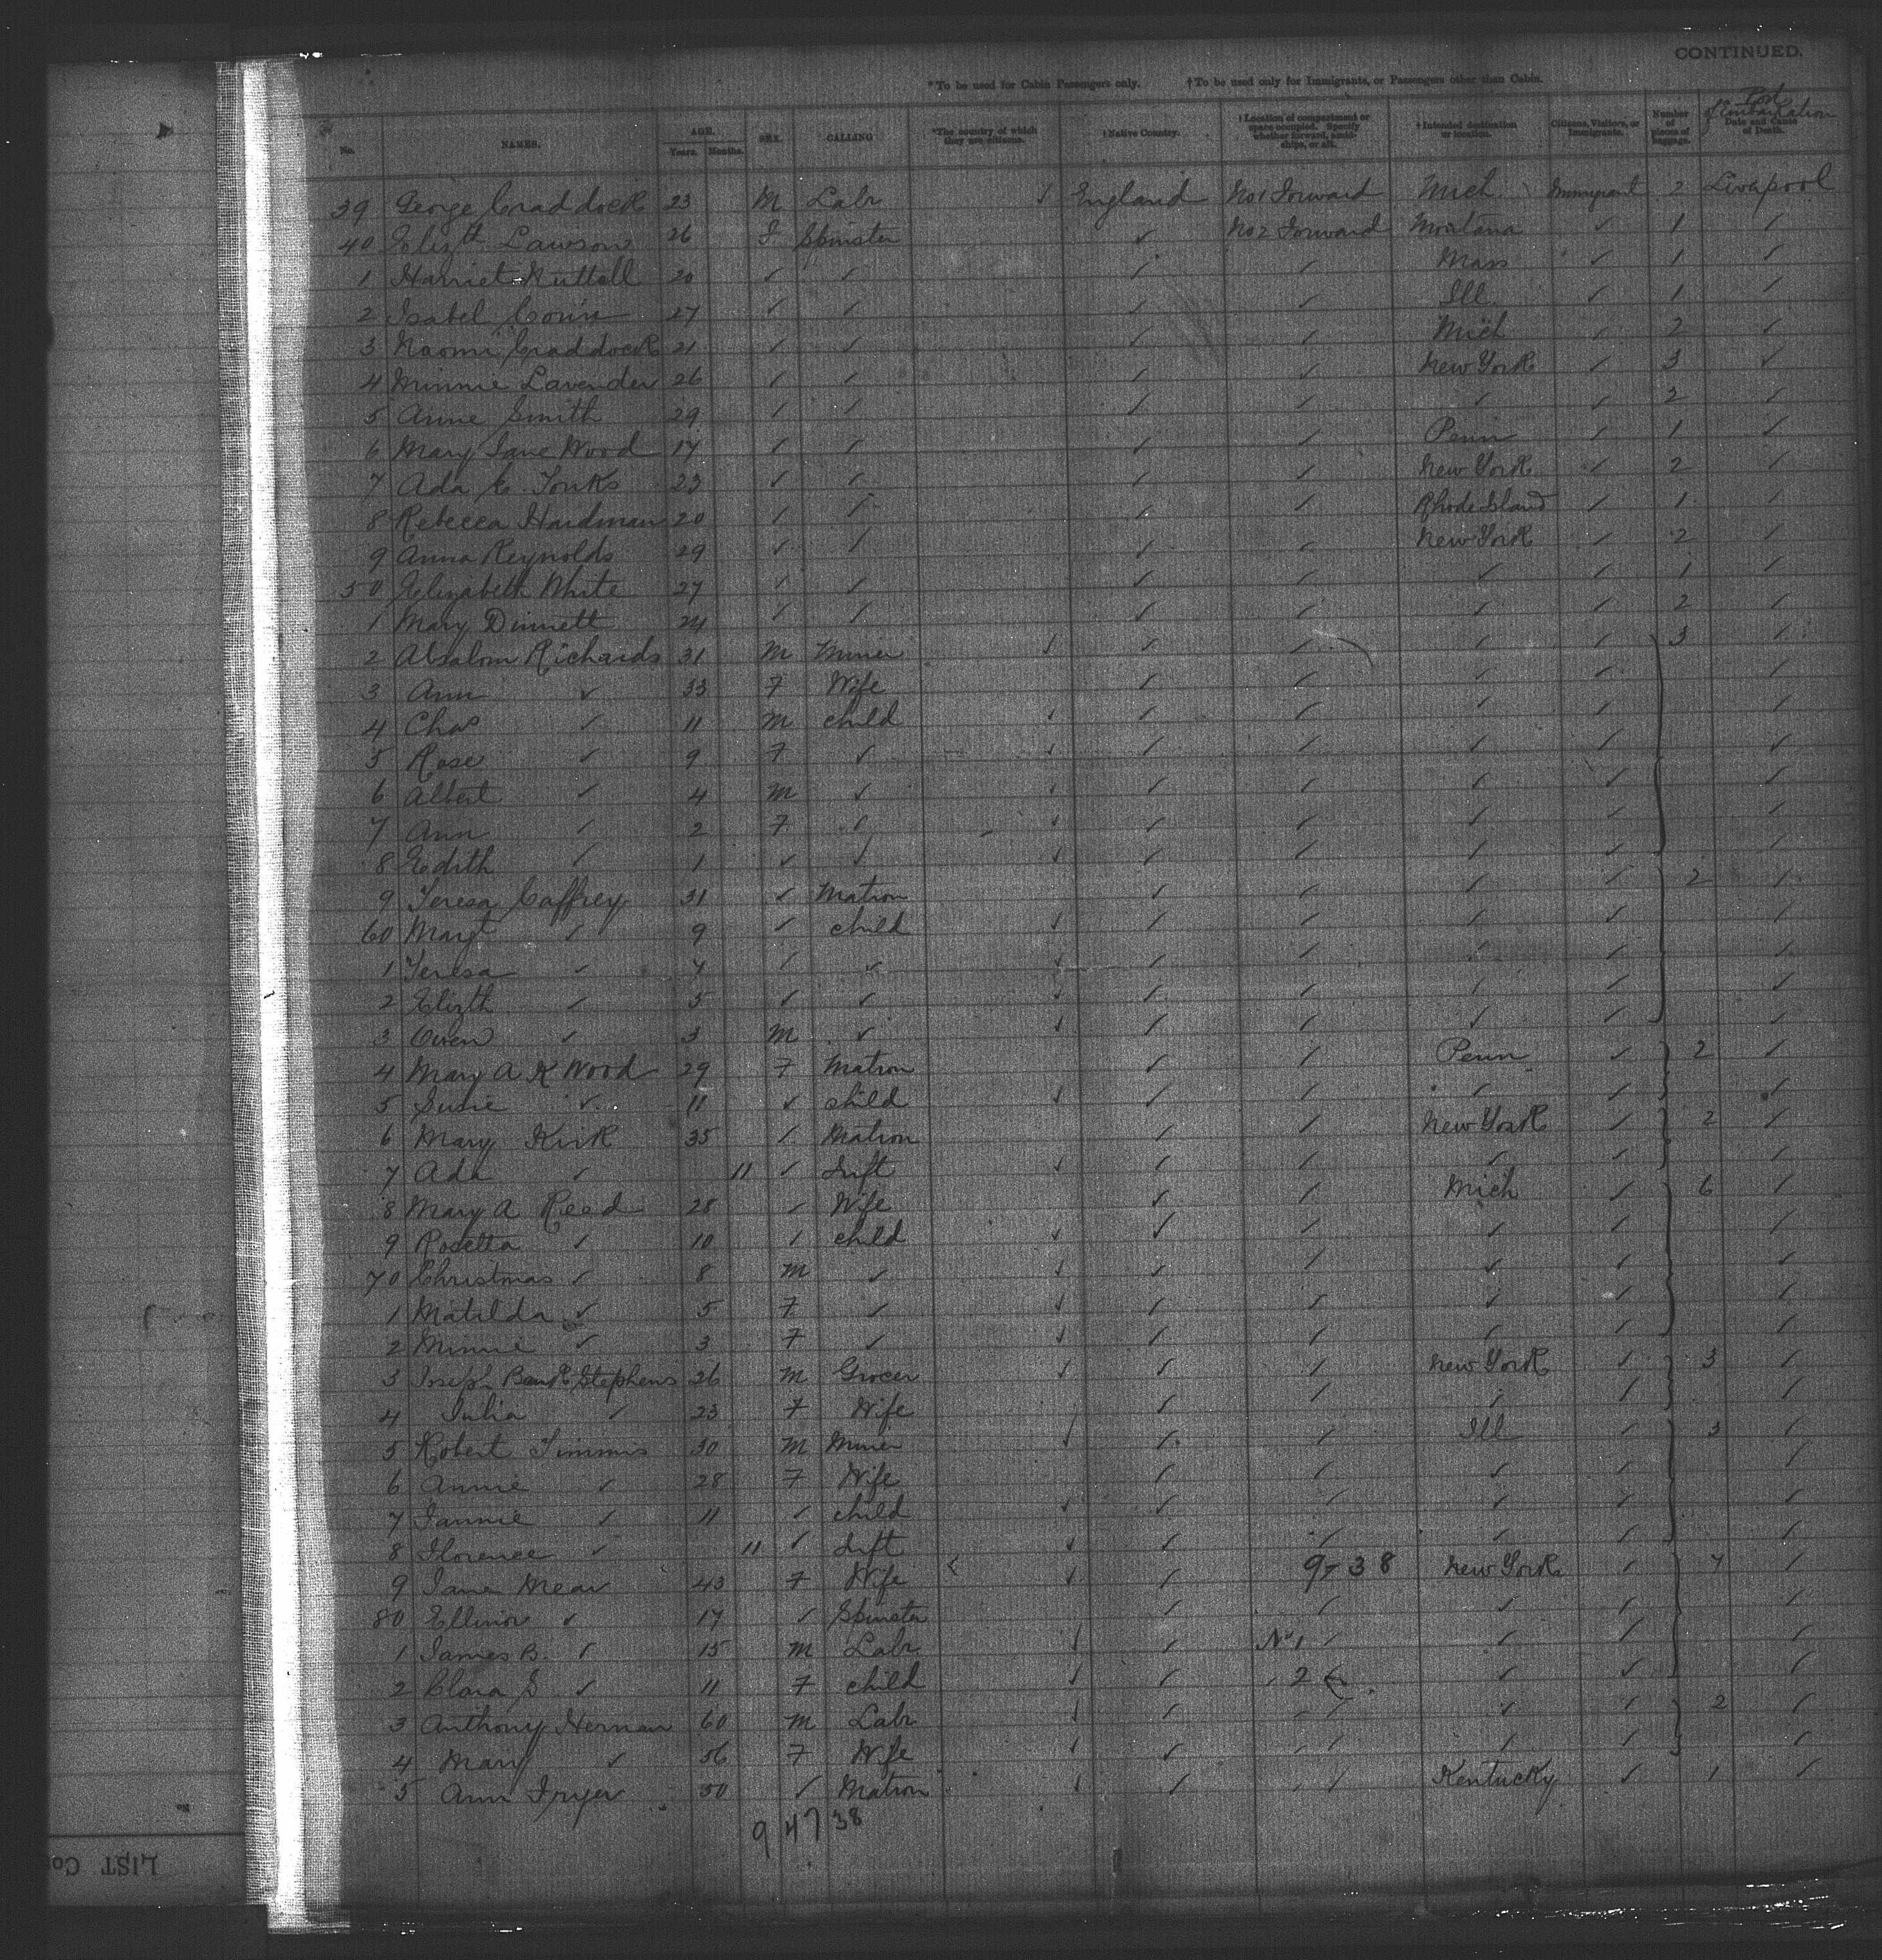 CONTINUED.
*To be used for Cabin Passengers only. †To be used only for Immigrants, or Passengers other than Cabin.
No. NAMES. AGE. Years. Months. SEX. CALLING *The country of which they are citizens. †Native Country. †Location of compartment or space occupied. Specify whether forward, amidships, or aft. †Intended destination or location. Citizens, Visitors, or Immigrants. Number of pieces of baggage. Port of Embarkation Date and Cause of Death.
39 George Craddock 23 M Labr ✓ England No 1 Forward Mich Immigrant 2 Liverpool
40 Elizth Lawson 26 F Spinster ✓ No 2 Forward Montana ✓ 1 ✓
1 Harriet Nuttall 20 ✓ ✓ ✓ ✓ Mass ✓ 1 ✓
2 Isabel 27 ✓ ✓ ✓ ✓ Ill. ✓ 1 ✓
3 Naomi Craddock 21 ✓ ✓ ✓ ✓ Mich ✓ 2 ✓
4 Minnie Lavender 26 ✓ ✓ ✓ ✓ New York ✓ 3 ✓
5 Anne Smith 29 ✓ ✓ ✓ ✓ ✓ ✓ 2 ✓
6 Mary Jane Wood 17 ✓ ✓ ✓ ✓ Penn ✓ 1 ✓
7 Ada E. Tonks 23 ✓ ✓ ✓ ✓ New York ✓ 2 ✓
8 Rebecca Hardman 20 ✓ ✓ ✓ ✓ Rhode Island ✓ 1 ✓
9 Anna Reynolds 29 ✓ ✓ ✓ ✓ New York ✓ 2 ✓
50 Elizabeth White 27 ✓ ✓ ✓ ✓ ✓ ✓ 1 ✓
1 Mary Dinnett 24 ✓ ✓ ✓ ✓ ✓ ✓ 2 ✓
2 Absalom Richards 31 M Miner ✓ ✓ ✓ ✓ ✓ 3 ✓
3 Ann ✓ 33 F Wife ✓ ✓ ✓ ✓ ✓
4 Chas ✓ 11 M child ✓ ✓ ✓ ✓ ✓ ✓
5 Rose ✓ 9 F ✓ ✓ ✓ ✓ ✓ ✓ ✓
6 Albert ✓ 4 M ✓ ✓ ✓ ✓ ✓ ✓ ✓
7 Ann ✓ 2 F ✓ ✓ ✓ ✓ ✓ ✓ ✓
8 Edith ✓ 1 ✓ ✓ ✓ ✓ ✓ ✓ ✓ ✓
9 Teresa Caffrey 31 ✓ Matron ✓ ✓ ✓ ✓ 2 ✓
60 Margt ✓ 9 ✓ child ✓ ✓ ✓ ✓ ✓ ✓
1 Teresa ✓ 7 ✓ ✓ ✓ ✓ ✓ ✓ ✓ ✓
2 Elizth ✓ 5 ✓ ✓ ✓ ✓ ✓ ✓ ✓ ✓
3 Owen ✓ 3 M ✓ ✓ ✓ ✓ ✓ ✓ ✓
4 Mary A K Wood 29 F Matron ✓ ✓ Penn ✓ 2 ✓
5 Susie ✓ 11 ✓ child ✓ ✓ ✓ ✓ ✓ ✓
6 Mary Kirk 35 ✓ Matron ✓ ✓ New York ✓ 2 ✓
7 Ada ✓ 11 ✓ Inft ✓ ✓ ✓ ✓ ✓ ✓
8 Mary A Reed 28 ✓ Wife ✓ ✓ Mich ✓ 6 ✓
9 Rosetta ✓ 10 ✓ child ✓ ✓ ✓ ✓ ✓ ✓
70 Christmas ✓ 8 M ✓ ✓ ✓ ✓ ✓ ✓ ✓
1 Matilda ✓ 5 F ✓ ✓ ✓ ✓ ✓ ✓ ✓
2 Minnie ✓ 3 F ✓ ✓ ✓ ✓ ✓ ✓ ✓
3 Joseph Stephens 26 M Grocer ✓ ✓ ✓ New York ✓ 3 ✓
4 Julia ✓ 23 F Wife ✓ ✓ ✓ ✓ ✓
5 Robert Timmis 30 M Miner ✓ ✓ ✓ Ill ✓ 3 ✓
6 Annie ✓ 28 F Wife ✓ ✓ ✓ ✓ ✓
7 Fannie ✓ 11 ✓ child ✓ ✓ ✓ ✓ ✓ ✓
8 Florence ✓ 11 ✓ Inft ✓ ✓ ✓ ✓ ✓ ✓
9 Jane Mear 43 F Wife ✓ ✓ 9-38 New York ✓ 7 ✓
80 Ellinor ✓ 17 ✓ Spinster ✓ ✓ ✓ ✓ ✓
1 James B. ✓ 15 M Labr ✓ ✓ No 1 ✓ ✓ ✓ ✓
2 Clara S ✓ 11 F child ✓ ✓ 2 ✓ ✓ ✓
3 Anthony Hernan 60 M Labr ✓ ✓ ✓ ✓ ✓ 2 ✓
4 Mary ✓ 56 F Wife ✓ ✓ ✓ ✓ ✓ ✓
5 Ann Fryer 50 ✓ Matron ✓ ✓ ✓ Kentucky ✓ 1 ✓
9 47 38
No
LIST Co